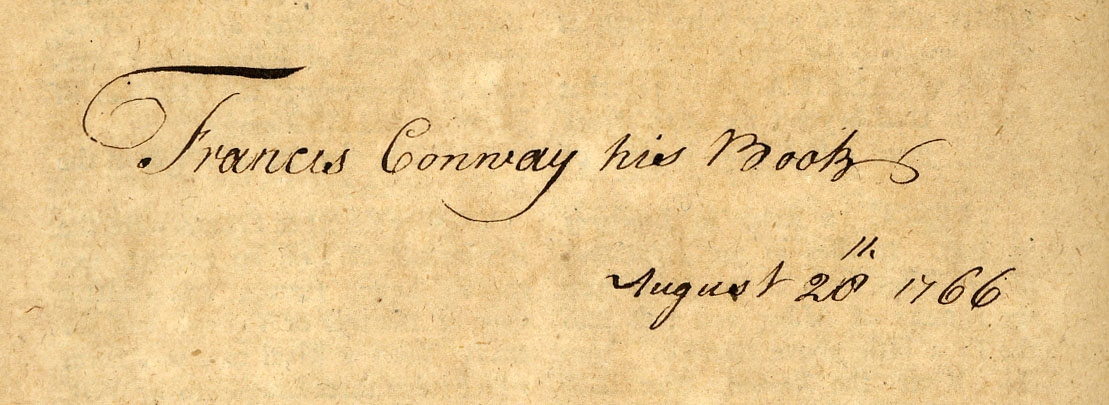 Francis Conway his Book
August 28th 1766